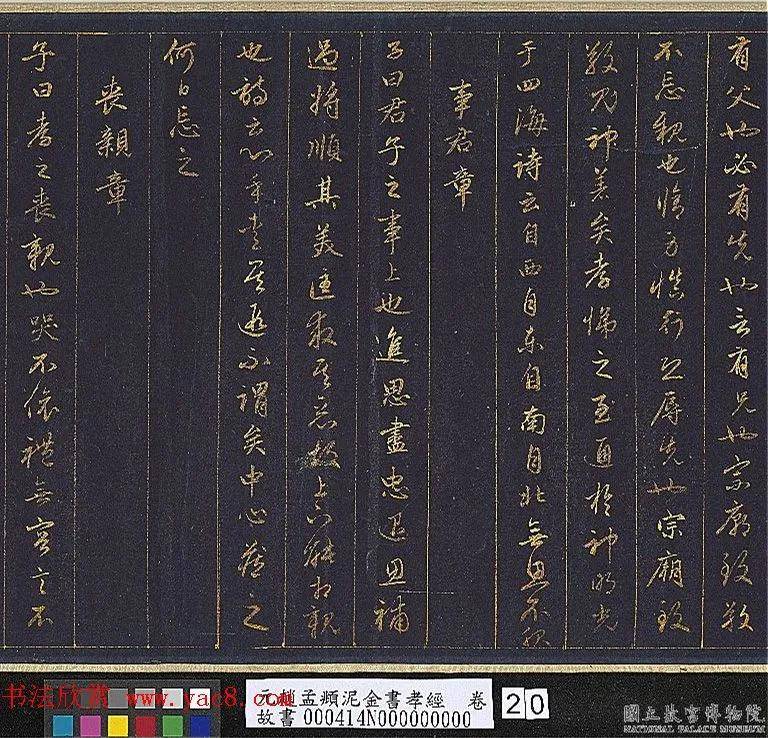 有父也必有先也言有兄也宗廟致敬
不忘親也脩身慎行恐辱先也宗廟致
敬鬼神著矣孝悌之至通於神明光
于四海詩云自西自東自南自北無思不服
事君章
子曰君子之事上也進思盡忠退思補
過將順其美匡救其惡故上下能相親
也詩云心乎愛矣遐不謂矣中心藏之
何日忘之
喪親章
子曰孝子之喪親也哭不偯禮無容言不
书法欣赏 www.yac8.com
元趙孟頫泥金書孝經 卷
故書000414N000000000
20
國立故宮博物院
NATIONAL PALACE MUSEUM